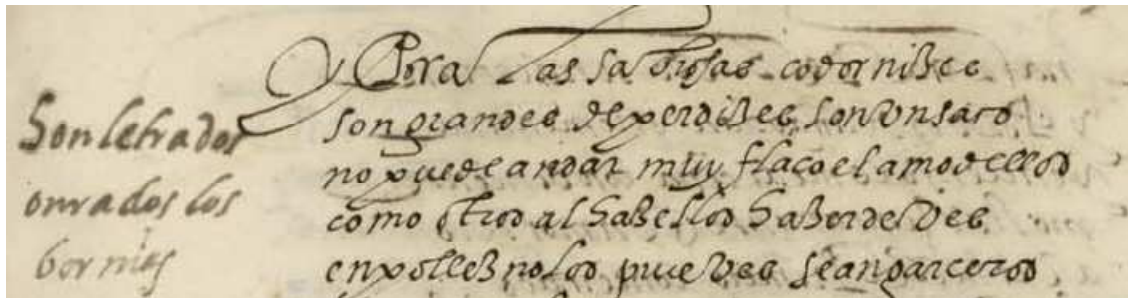 Son letrados
onrados los
bornies
Para las sabrosas codornizes
son grandes de perdizes son un sacro
no puede andar muy flaco el amo dellos
como otros al
en pollez no los prueves sean garceros